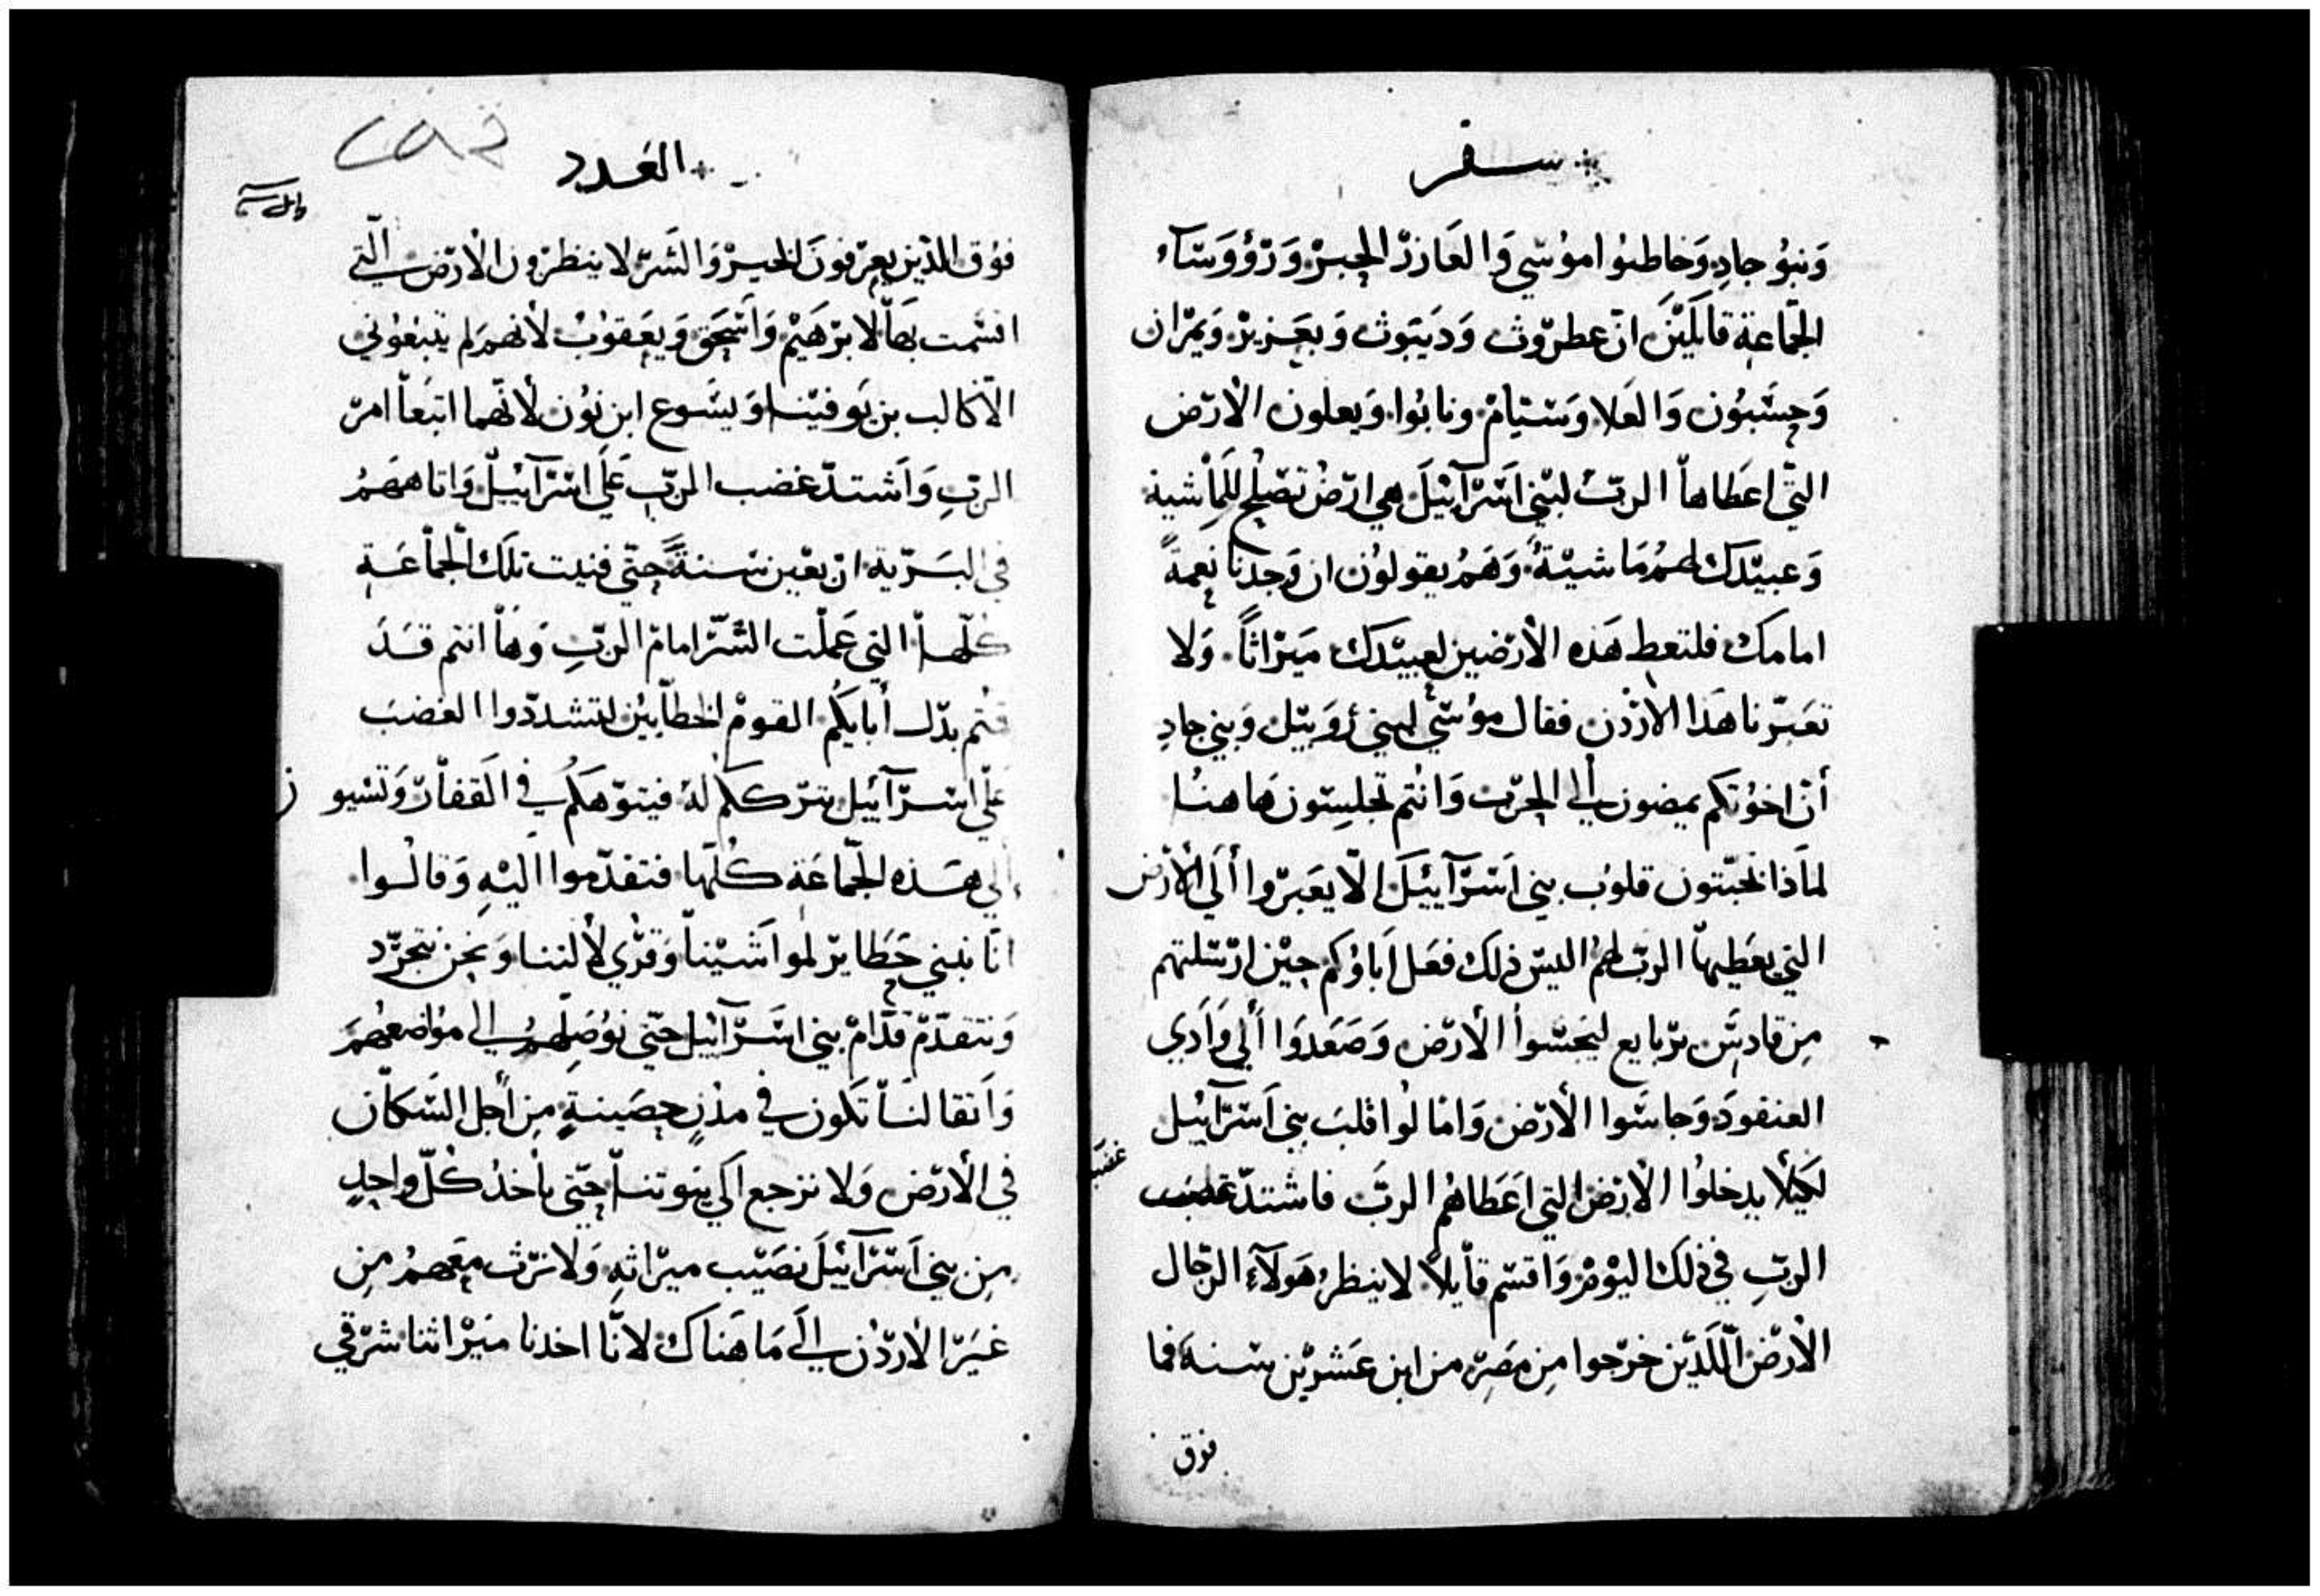 سفر
وَبنوُ جادِ وَخاطبوُا موُسَي وَالعَازرْ الحِبرْ وَرْؤوَسَآء
الجمَّاعَة قاَئليْنَ انّ عطرّوث وَدَيبَوث وَبعَزيزْ وَيمْرَان
وَحِسَّبوُن وَالعَلا وَسَتيامْ ونابوُا وَيعلون الأرّض
التَّي اعَطاهاْ الربّ لبنّي اسَرّآئيْلَ هي ارّضْ تصْلح للمَاْشية
وَعبيّدك لهمُ مَاشيّةً وَهمُ يقولوُن ان وَجدناَ نِعمةً
امامك فلتعط هَذه الأرّضين لعبيّدك مَيرْاثاً وَلا
تعَبرّناَ هَذا الأردّن فقال موُسّي لبني رُوَبيّل وَبني جادِ
أنّ اخوُتكم يمضون الي الحرّب وَانُتم تجلِسّون هَاهنُا
لماَذا تخبتّون قلوُب بني اسَرّآئيَلَ الّا يعَبرّوا أَلَي الأرْض
التي يعَطيهاّ الربّ لهمُ اليسّ ذلك فعَل اَباؤُكم حِيْن ارّسَلتهم
مِن قادسَّ برّبايع ليجَسّواْ الأرّض وَصَعَدَوا أَلي وَادَي
العنقودَ وَجاسَّوا الأرّض وَامالوُا قلبَ بني اسَرّائيْل
لكَيلأ يدخلوُا الأرْض التي اعَطاهُم الربَّ فاشتدّ غضب
الربّ في ذلك اليوْمْ وَاقسَم قأيلاً لا ينظرُ هَولآء الرّجال
الأرّض اللَدّين خرّجوا مِن مَصِر من ابن عَشرْيْن سَنه فما
فوق
العَدد
فوُق اللذين يعِرّفونَ الخيرْ وَالشَرّ لا ينظرْون الأرّض التّي
اقسَمت بهَاْ لابرْهَيْم وَاسَحق وَيعَقوُبْ لأنهمُ لم يتبعوُني
الّا كالب بن يَوفيّنا وَيشَوع ابن نوُن لأنّهما اتبَعاْ امرْ
الربّ وَاَشتدّ غضب الربّ عَلَي اسَرّآئيْلّ وَاتاههَمُ
في البَرّية ارْبعْين سَنةً حِتّي فنيت تلَك الجمَاْعَة
كُلّهاْ التي عَملْت الشَرّ امامْ الربّ وَهاْ انتم قَدَ
قتم بدّل أبايكُم القومْ الخطاّيْين لتشددّوا الغضبَ
عَلّي اسَرّآئيْل يترّككم لهْ فيتوّهكَم في القفاْرّ وَتسَيو
الي هَذه الجَّماعَة كُلّها فتقدّموا اليْهِ وَقالُوا
انّا نبني حَظايرّ لموَاشَيْناْ وَقرْي لأَلتنا وَنحِن نتجرّد
وَنتقدّمْ قدَّامْ بني اسَرّآئيْل حِتّي نوُصِلهمُ الي موُاضعهُمَ
وَاَثقا لناَّ تَكون في مدْنٍ حِصَينةٍ مِن أجل السَّكاّن
في الأرّض وَلا نرْجع اَلي بيَوتنا حِتّي يأخذُ كُلّ واحِدٍ
مِن بني اَسَرْآئيْلَ نصَيْب ميرْاثهِ وَلا نرّث معَهمُ مِن
غيَرّ الأردّن الَي مَا هَناك لانّا اخدنا ميَرْاثنا شرّقي